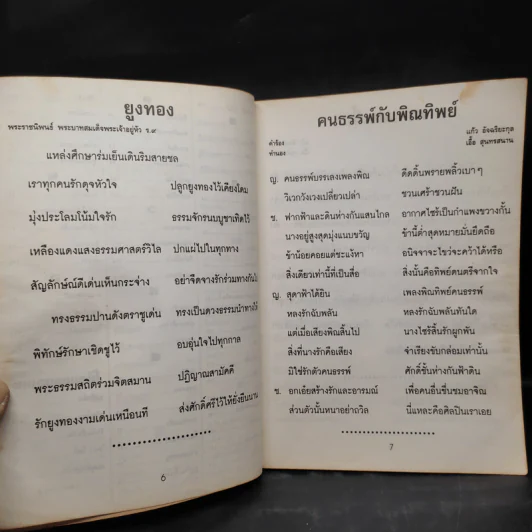 ยูงทอง
พระราชนิพนธ์ พระบาทสมเด็จพระเจ้าอยู่หัว ร.๙
แหล่งศึกษาร่มเย็นเดินริมสายชล
เราทุกคนรักดุจหัวใจ ปลูกยูงทองไว้เคียงโดม
มุ่งประโลมโน้มใจรัก ธรรมจักรนบบูชาเทิดไว้
เหลืองแดงแสงธรรมศาสตร์วิไล ปกแผ่ไปในทุกทาง
สัญลักษณ์ดีเด่นเห็นกระจ่าง อย่าจืดจางรักร่วมทางกัน
ทรงธรรมปานดังตราชูเด่น ทรงเป็นดวงธรรมนำทาง
พิทักษ์รักษาเชิดชูไว้ อบอุ่นใจไปทุกกาล
พระธรรมสถิตร่วมจิตสมาน ปฏิญาณสามัคคี
รักยูงทองงามเด่นเหนือนที ส่งศักดิ์ศรีไว้ให้ยั่งยืนนาน
6
คนธรรพ์กับพิณทิพย์
คำร้อง แก้ว อัจฉริยะกุล
ทำนอง เอื้อ สุนทรสนาน
ญ. คนธรรพ์บรรเลงเพลงพิณ ดีดดิ้นพรายพลิ้วเบา ๆ
วิเวกวังเวงเปลี่ยวเปล่า ชวนเศร้าชวนฝัน
ช. ฟากฟ้าและดินห่างกันแสนไกล อากาศไซร้เป็นกำแพงขวางกั้น
นางอยู่สูงสุดมุ่งแนบขวัญ ข้านี้ต่ำสุดหมายมั่นยึดถือ
ข้าน้อยคอยแต่ชะแง้หา อนิจจาจะไขว่จะคว้าได้หรือ
สิ่งเดียวเท่านี้ที่เป็นสื่อ สิ่งนั้นคือทิพย์ดนตรีจากใจ
ญ. สุดาฟ้าได้ยิน เพลงพิณทิพย์คนธรรพ์
หลงรักฉับพลัน หลงรักฉับพลันทันใด
แต่เมื่อเสียงพิณสิ้นไป นางไซร้สิ้นรักผูกพัน
สิ่งที่นางรักคือเสียง จำเรียงขับกล่อมเท่านั้น
มิใช่รักตัวคนธรรพ์ ศักดิ์ชั้นห่างกันฟ้าดิน
ช. อกเอ๋ยสร้างรักและอารมณ์ เพื่อคนอื่นชื่นชมอาจิณ
ส่วนตัวนั้นหนาอย่าถวิล นี่แหละคือศิลปินเราเอย
7